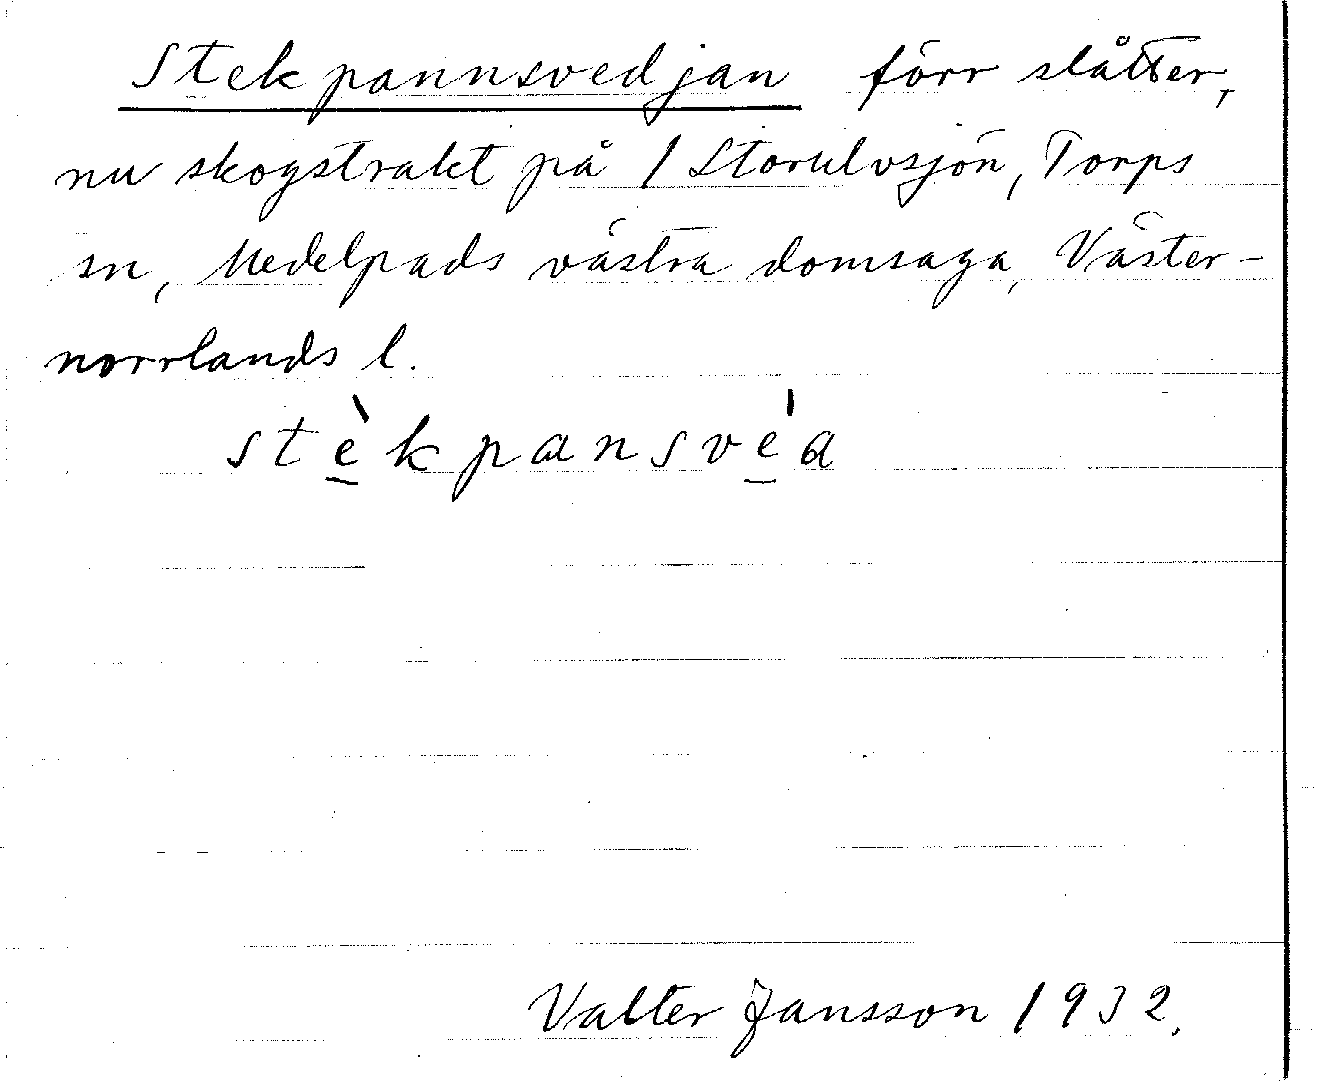 Stekpannsvedjan förr slåtter,
nu skogstrakt på 1 Storulvsjön, Torps
sn, Medelpads västra domsaga, Väster-
norrlands l.
stè̲kpansvé̲a
Valter Jansson 1932.